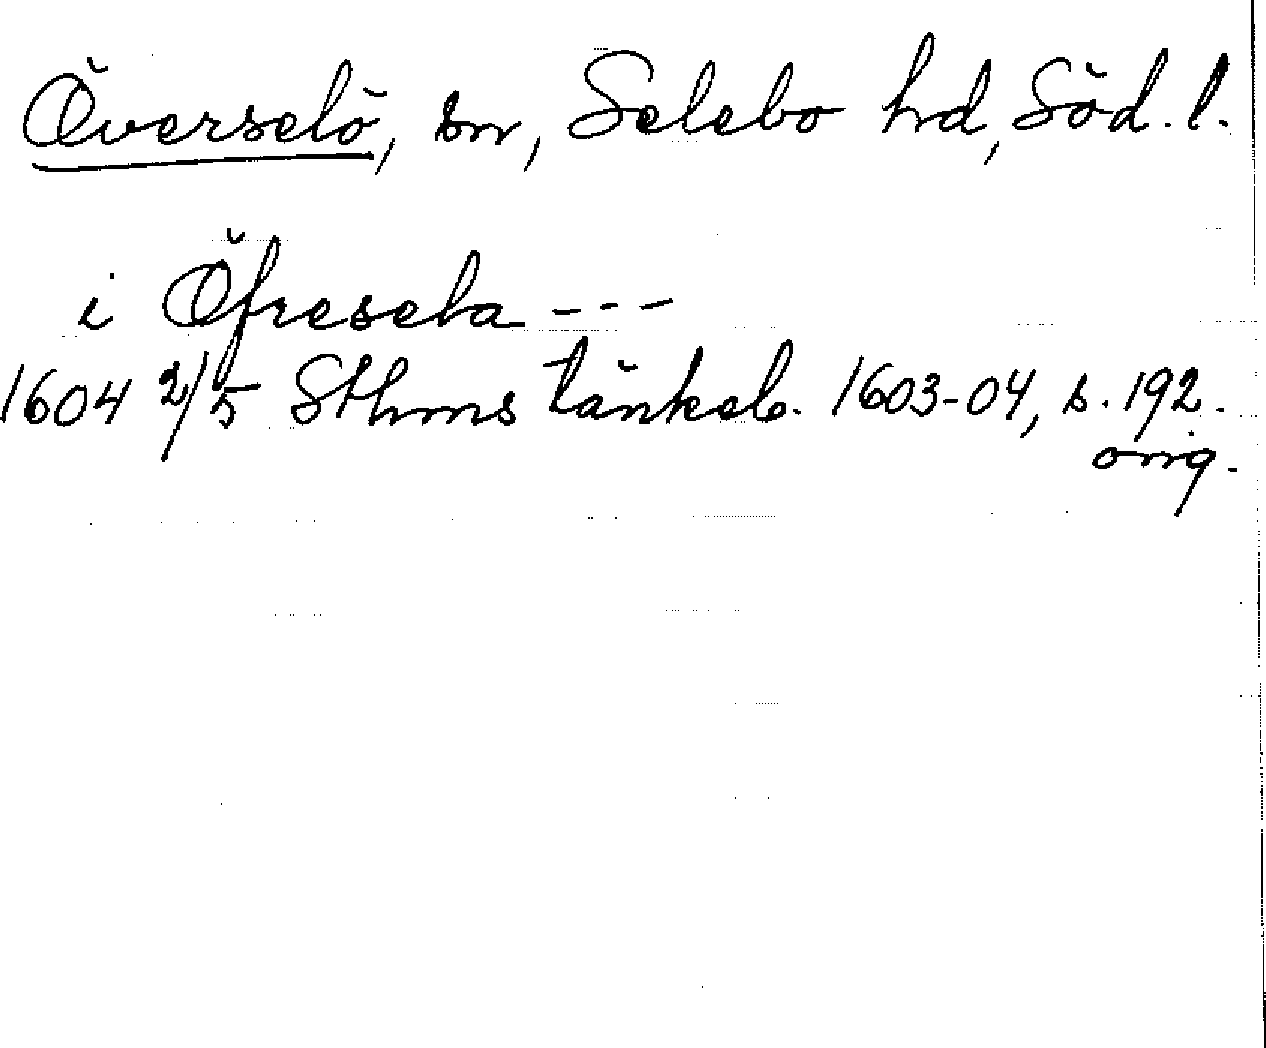 Överselö, sn, Selebo hd, Söd. l.
i Öfresela ---
1604 2/5 Sthms tänkeb. 1603-04, s. 192.
orig.